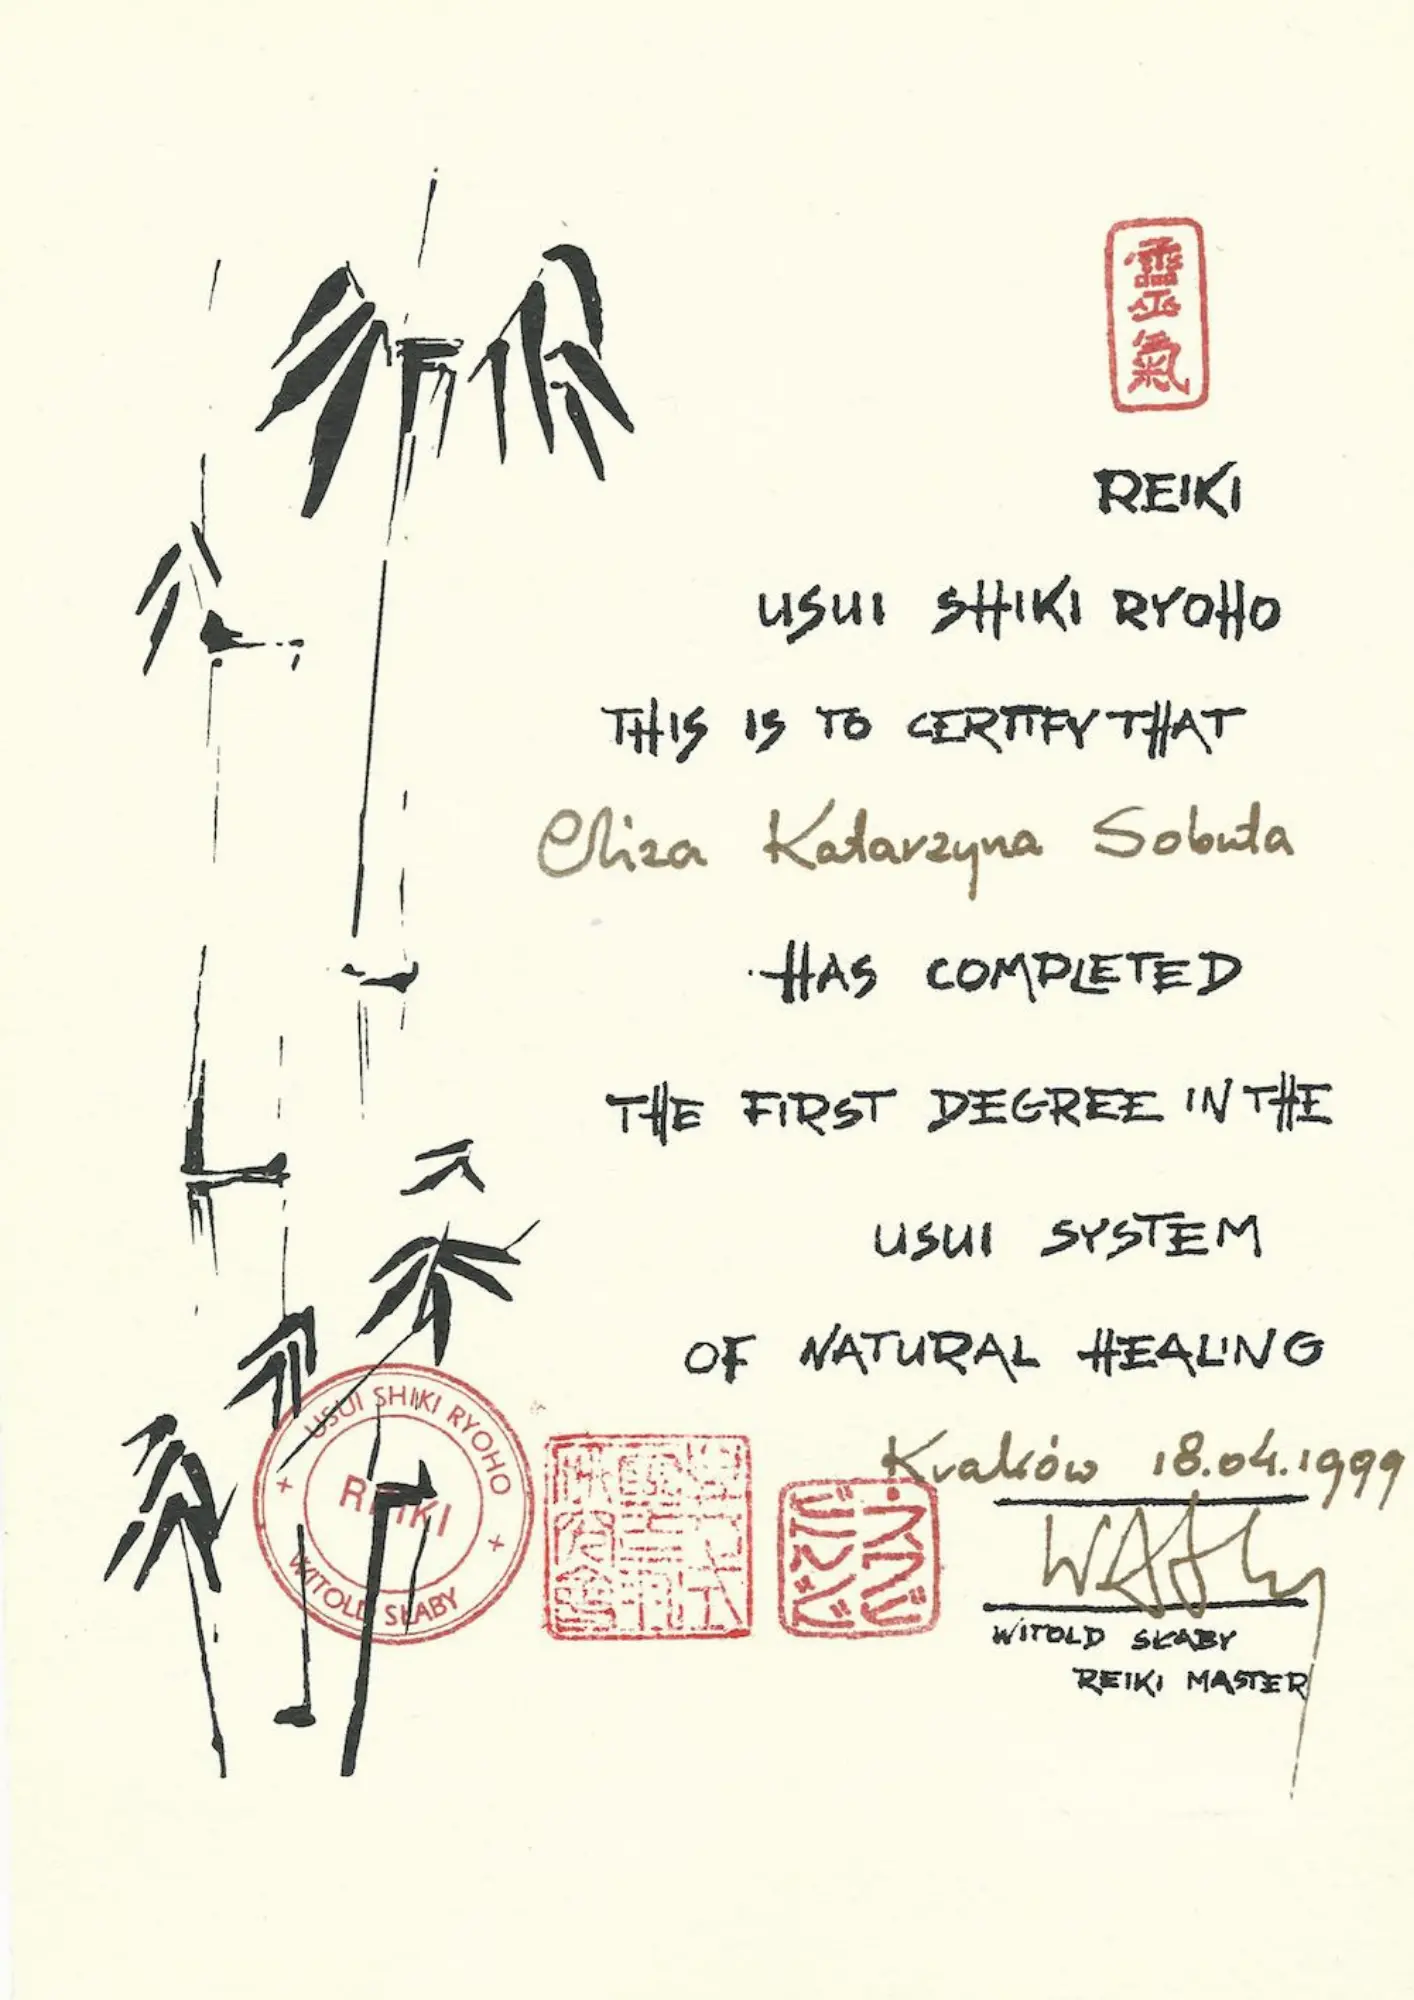 靈氣
REIKI
USUI SHIKI RYOHO
THIS IS TO CERTIFY THAT
Eliza Katarzyna Sobuta
HAS COMPLETED
THE FIRST DEGREE IN THE
USUI SYSTEM
OF NATURAL HEALING
Kraków 18.04.1999
WITOLD SKABY
REIKI MASTER
USUI SHIKI RYOHO
REIKI
WITOLD SKABY